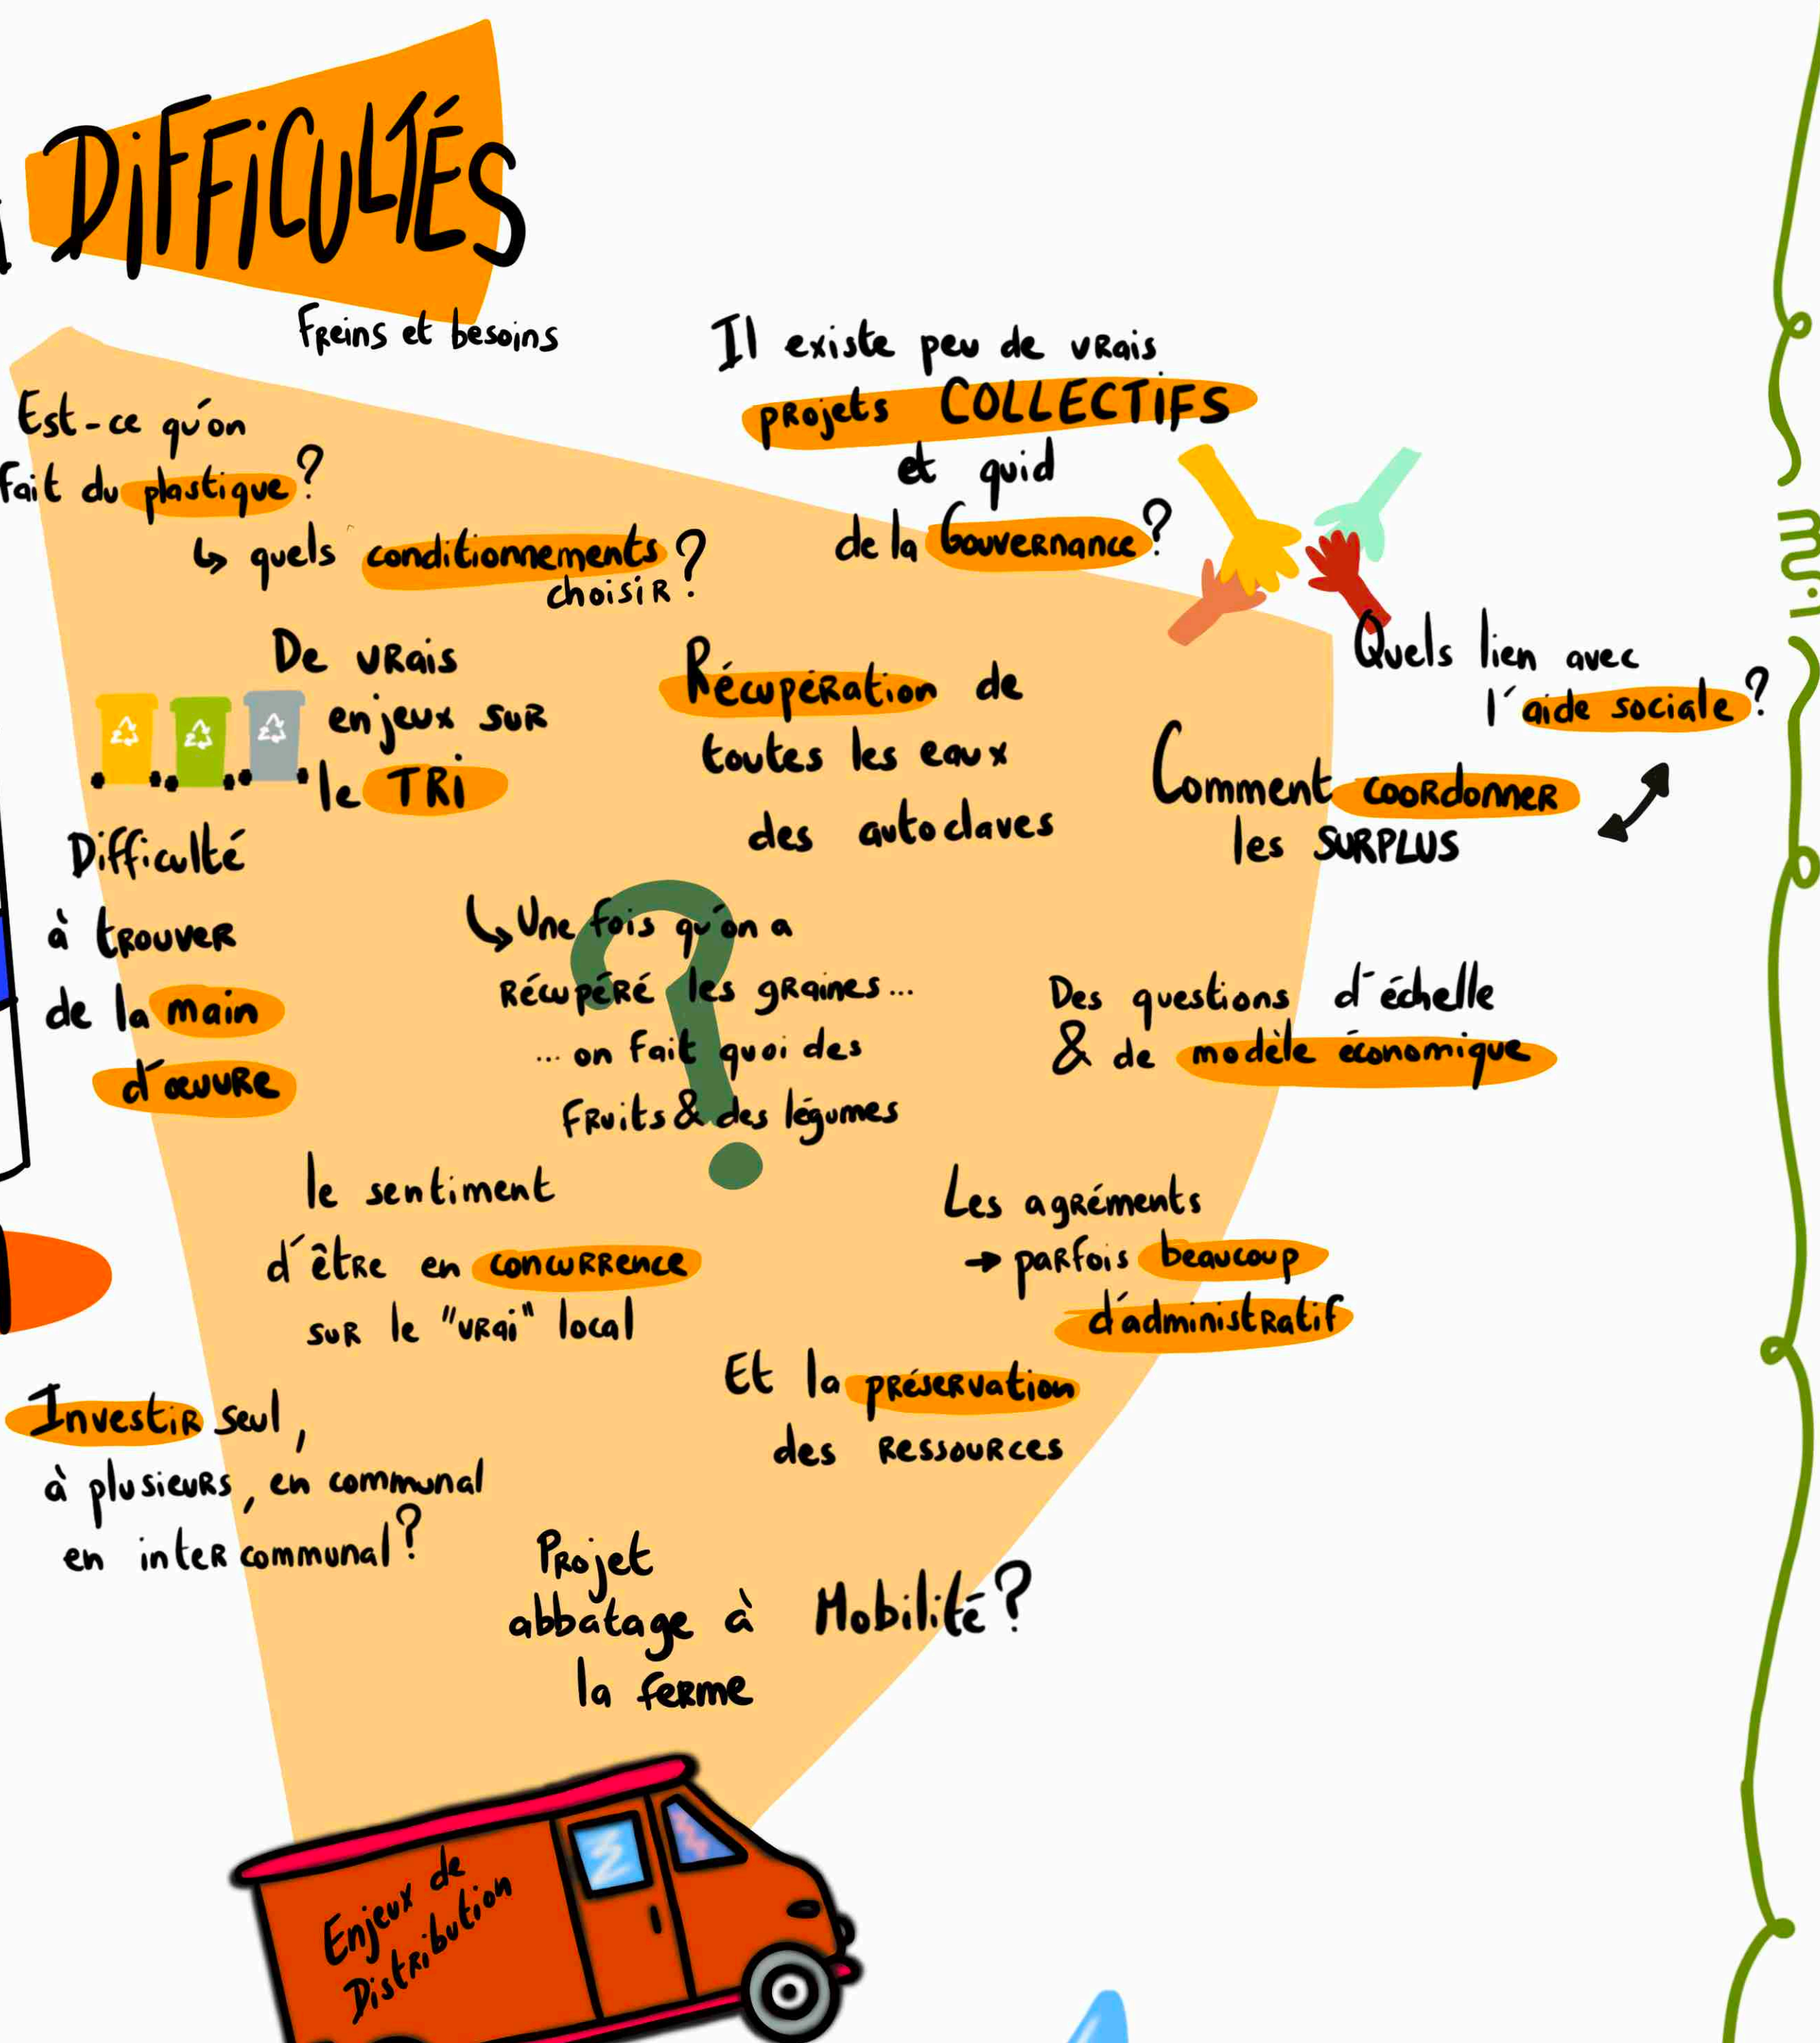 DiFFiCULTÉS
Freins et besoins
Est-ce qu'on
fait du plastique ?
↳ quels conditionnements ?
choisir
Il existe peu de vrais
projets COLLECTiFS
et quid
de la Gouvernance ?
De vrais
enjeux sur
le TRi
Récupération de
toutes les eaux
des autoclaves
Quels lien avec
l'aide sociale ?
Comment coordonner
les SURPLUS
Difficulté
à trouver
de la main
d'œuvre
↳ Une fois qu'on a
récupéré les graines...
... on fait quoi des
fruits & des légumes
?
Des questions d'échelle
& de modèle économique
le sentiment
d'être en concurrence
sur le "vrai" local
Les agréments
→ parfois beaucoup
d'administratif
Et la préservation
des ressources
Investir seul,
à plusieurs, en communal
en inter communal ?
Projet
abbatage à
la ferme
Mobilité ?
Enjeux de
Distribution